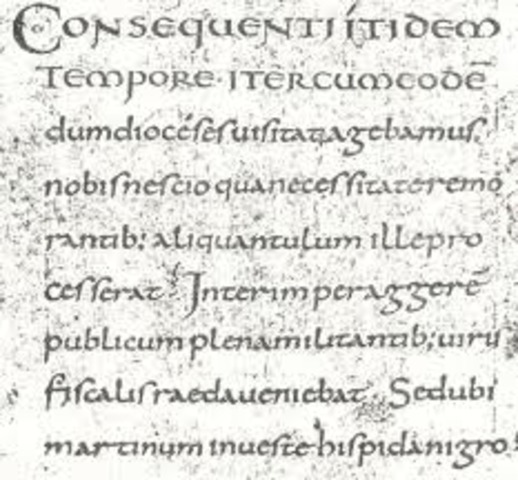 CONSEQUENTI ITIDEM
TEMPORE · ITERCUMEODĒ
dumdiocésesuisitatagebamus.
nobisnescioquanecessitateremo
rantib: aliquantulum illepro
cesserat. Interimperaggerē
publicumplenamilitantib; uiris
fiscalisraedaueniebat. Sedubi
martinum inuestehispidanigro